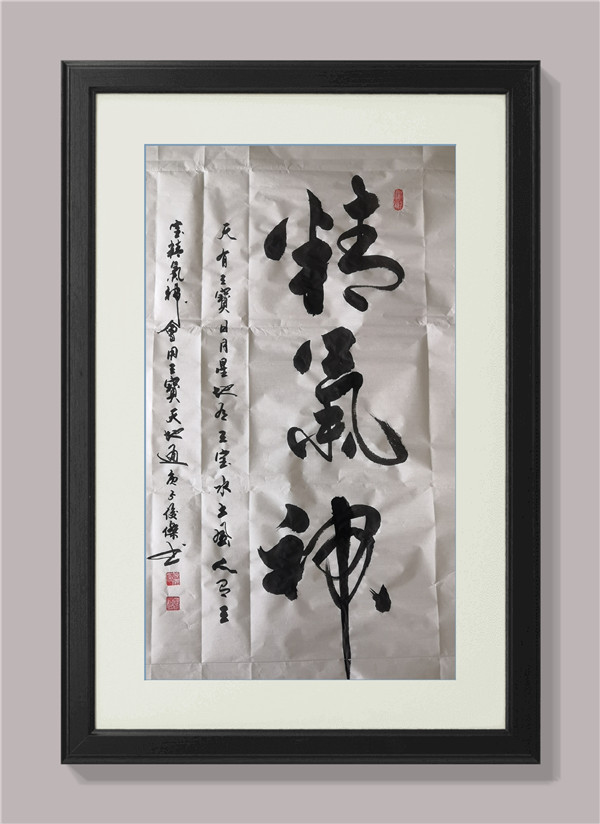 精氣神
天有三寶日月星地有三宝水土風人有三
宝精氣神會用三寶天地通庚子俊傑书